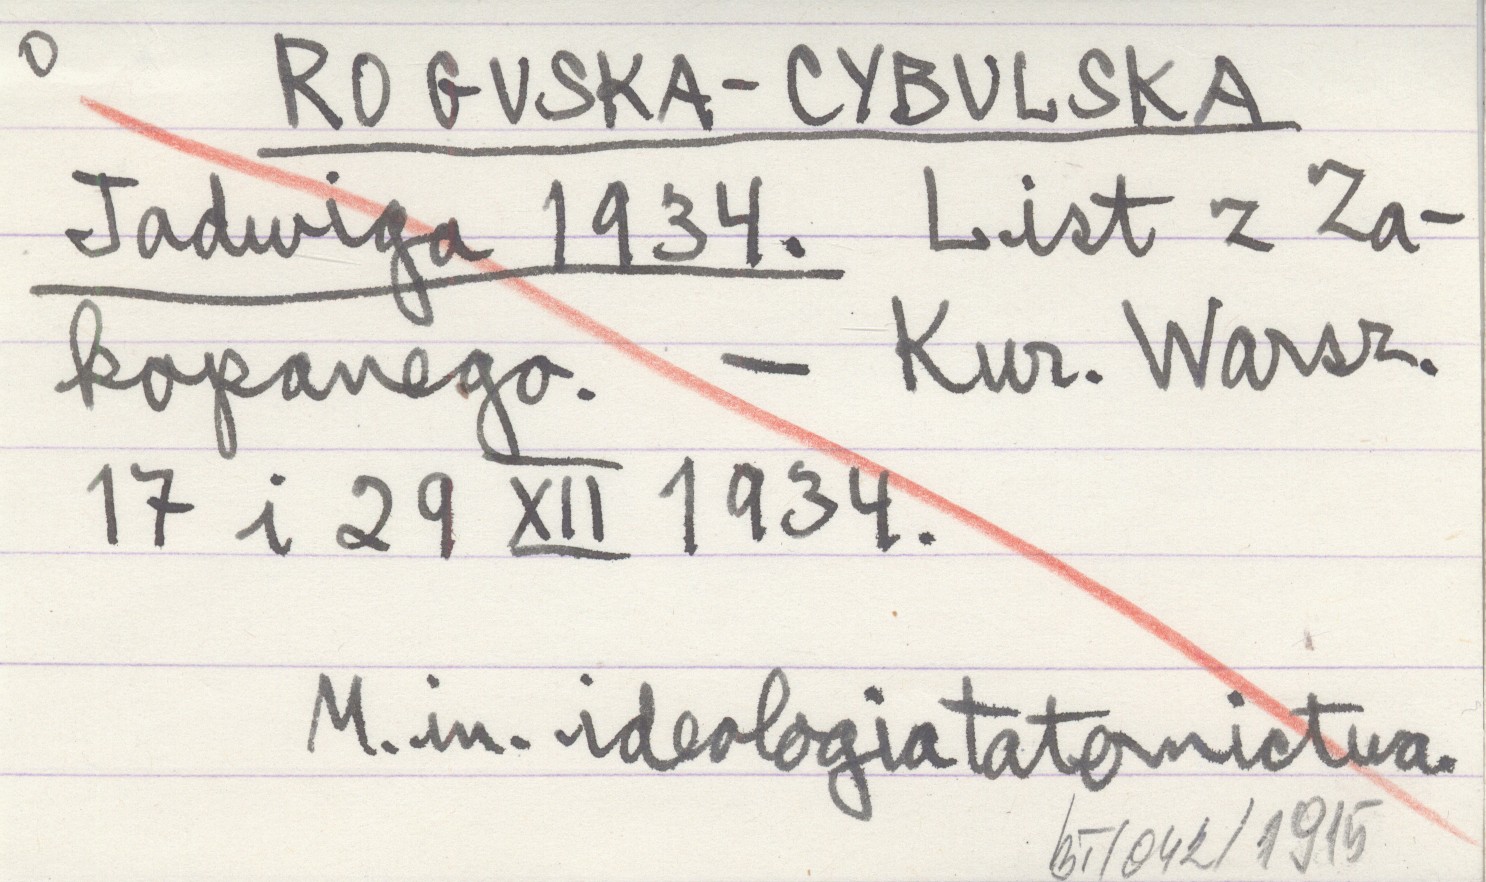 O
ROGUSKA-CYBULSKA
Jadwiga 1934. List z Za-
kopanego. — Kur. Warsz.
17 i 29 XII 1934.
M. in. ideologia taternictwa.
BT/042/1915